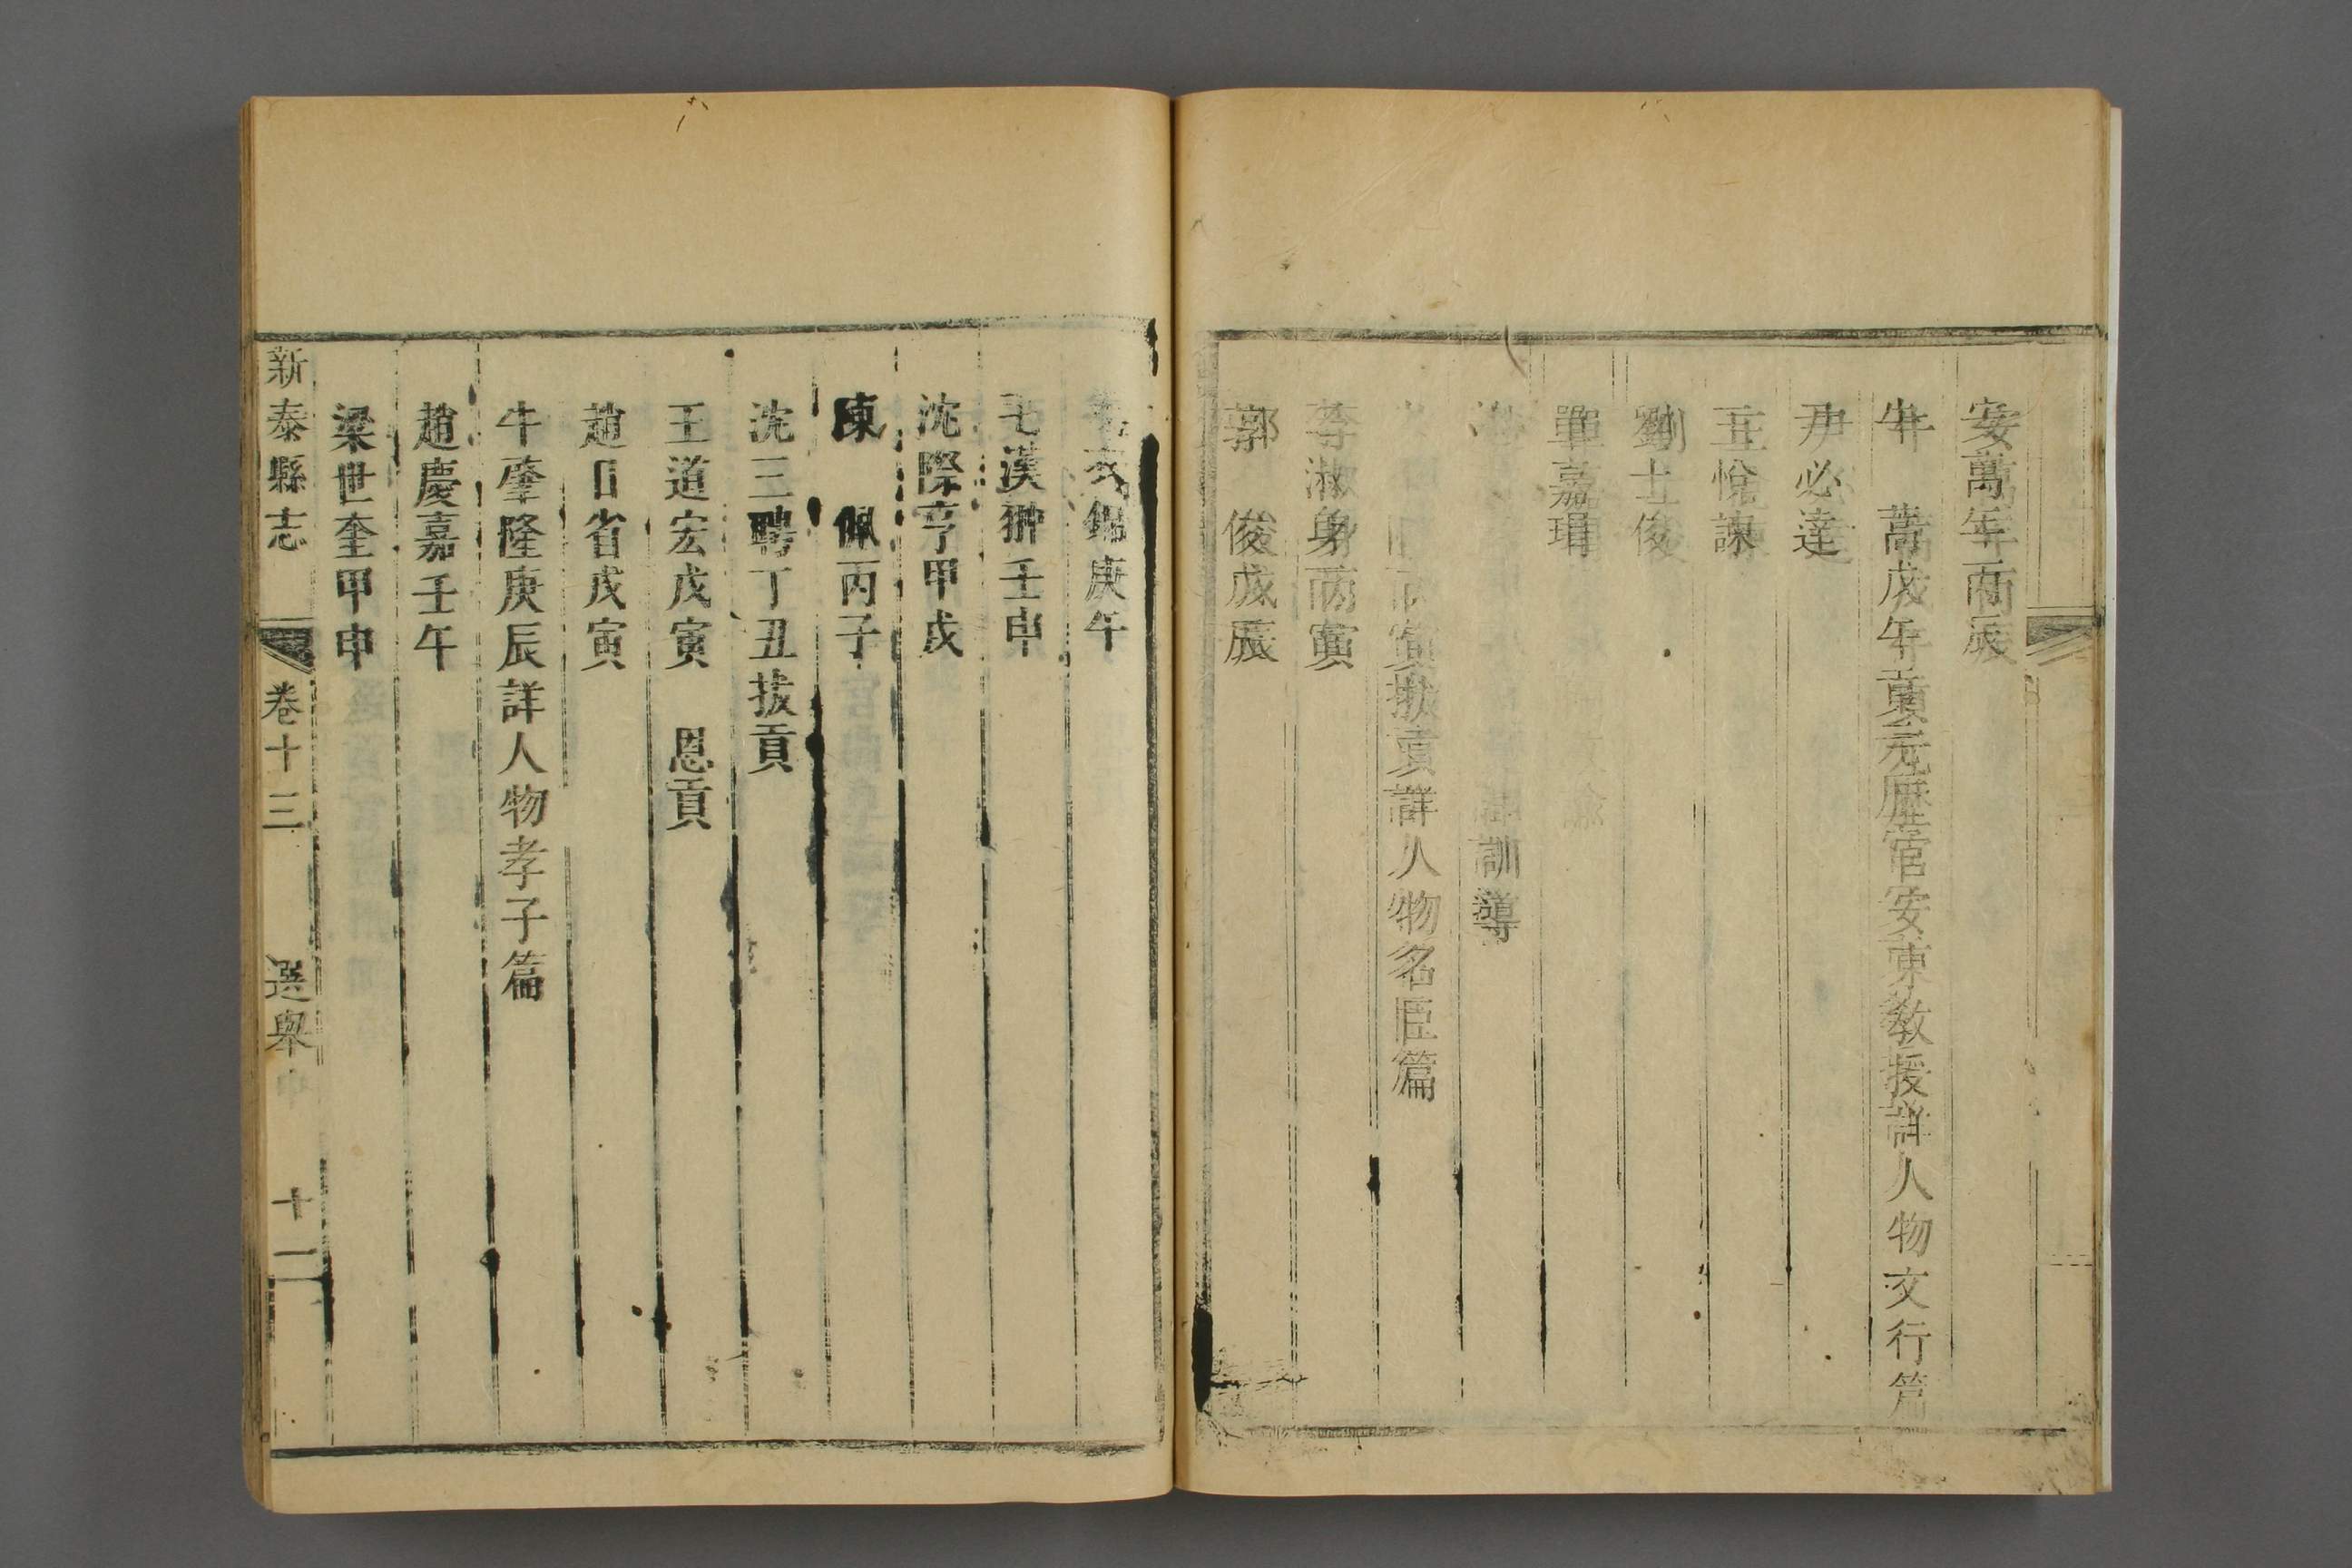 安萬年丙辰
牛 萬戊午貢元歷官安東教授詳人物文行篇
尹必達
王悅諫
劉士俊
單嘉琄
訓導
寅拔貢詳人物名臣篇
李淑身丙寅
郭 俊戊辰
玄錫庚午
毛漢翀壬申
沈際亨甲戌
陳 佩丙子
沈三聘丁丑拔貢
王道宏戊寅 恩貢
趙日省戊寅
牛肇隆庚辰詳人物孝子篇
趙慶嘉壬午
梁世奎甲申
新泰縣志 卷十三 選舉 十一